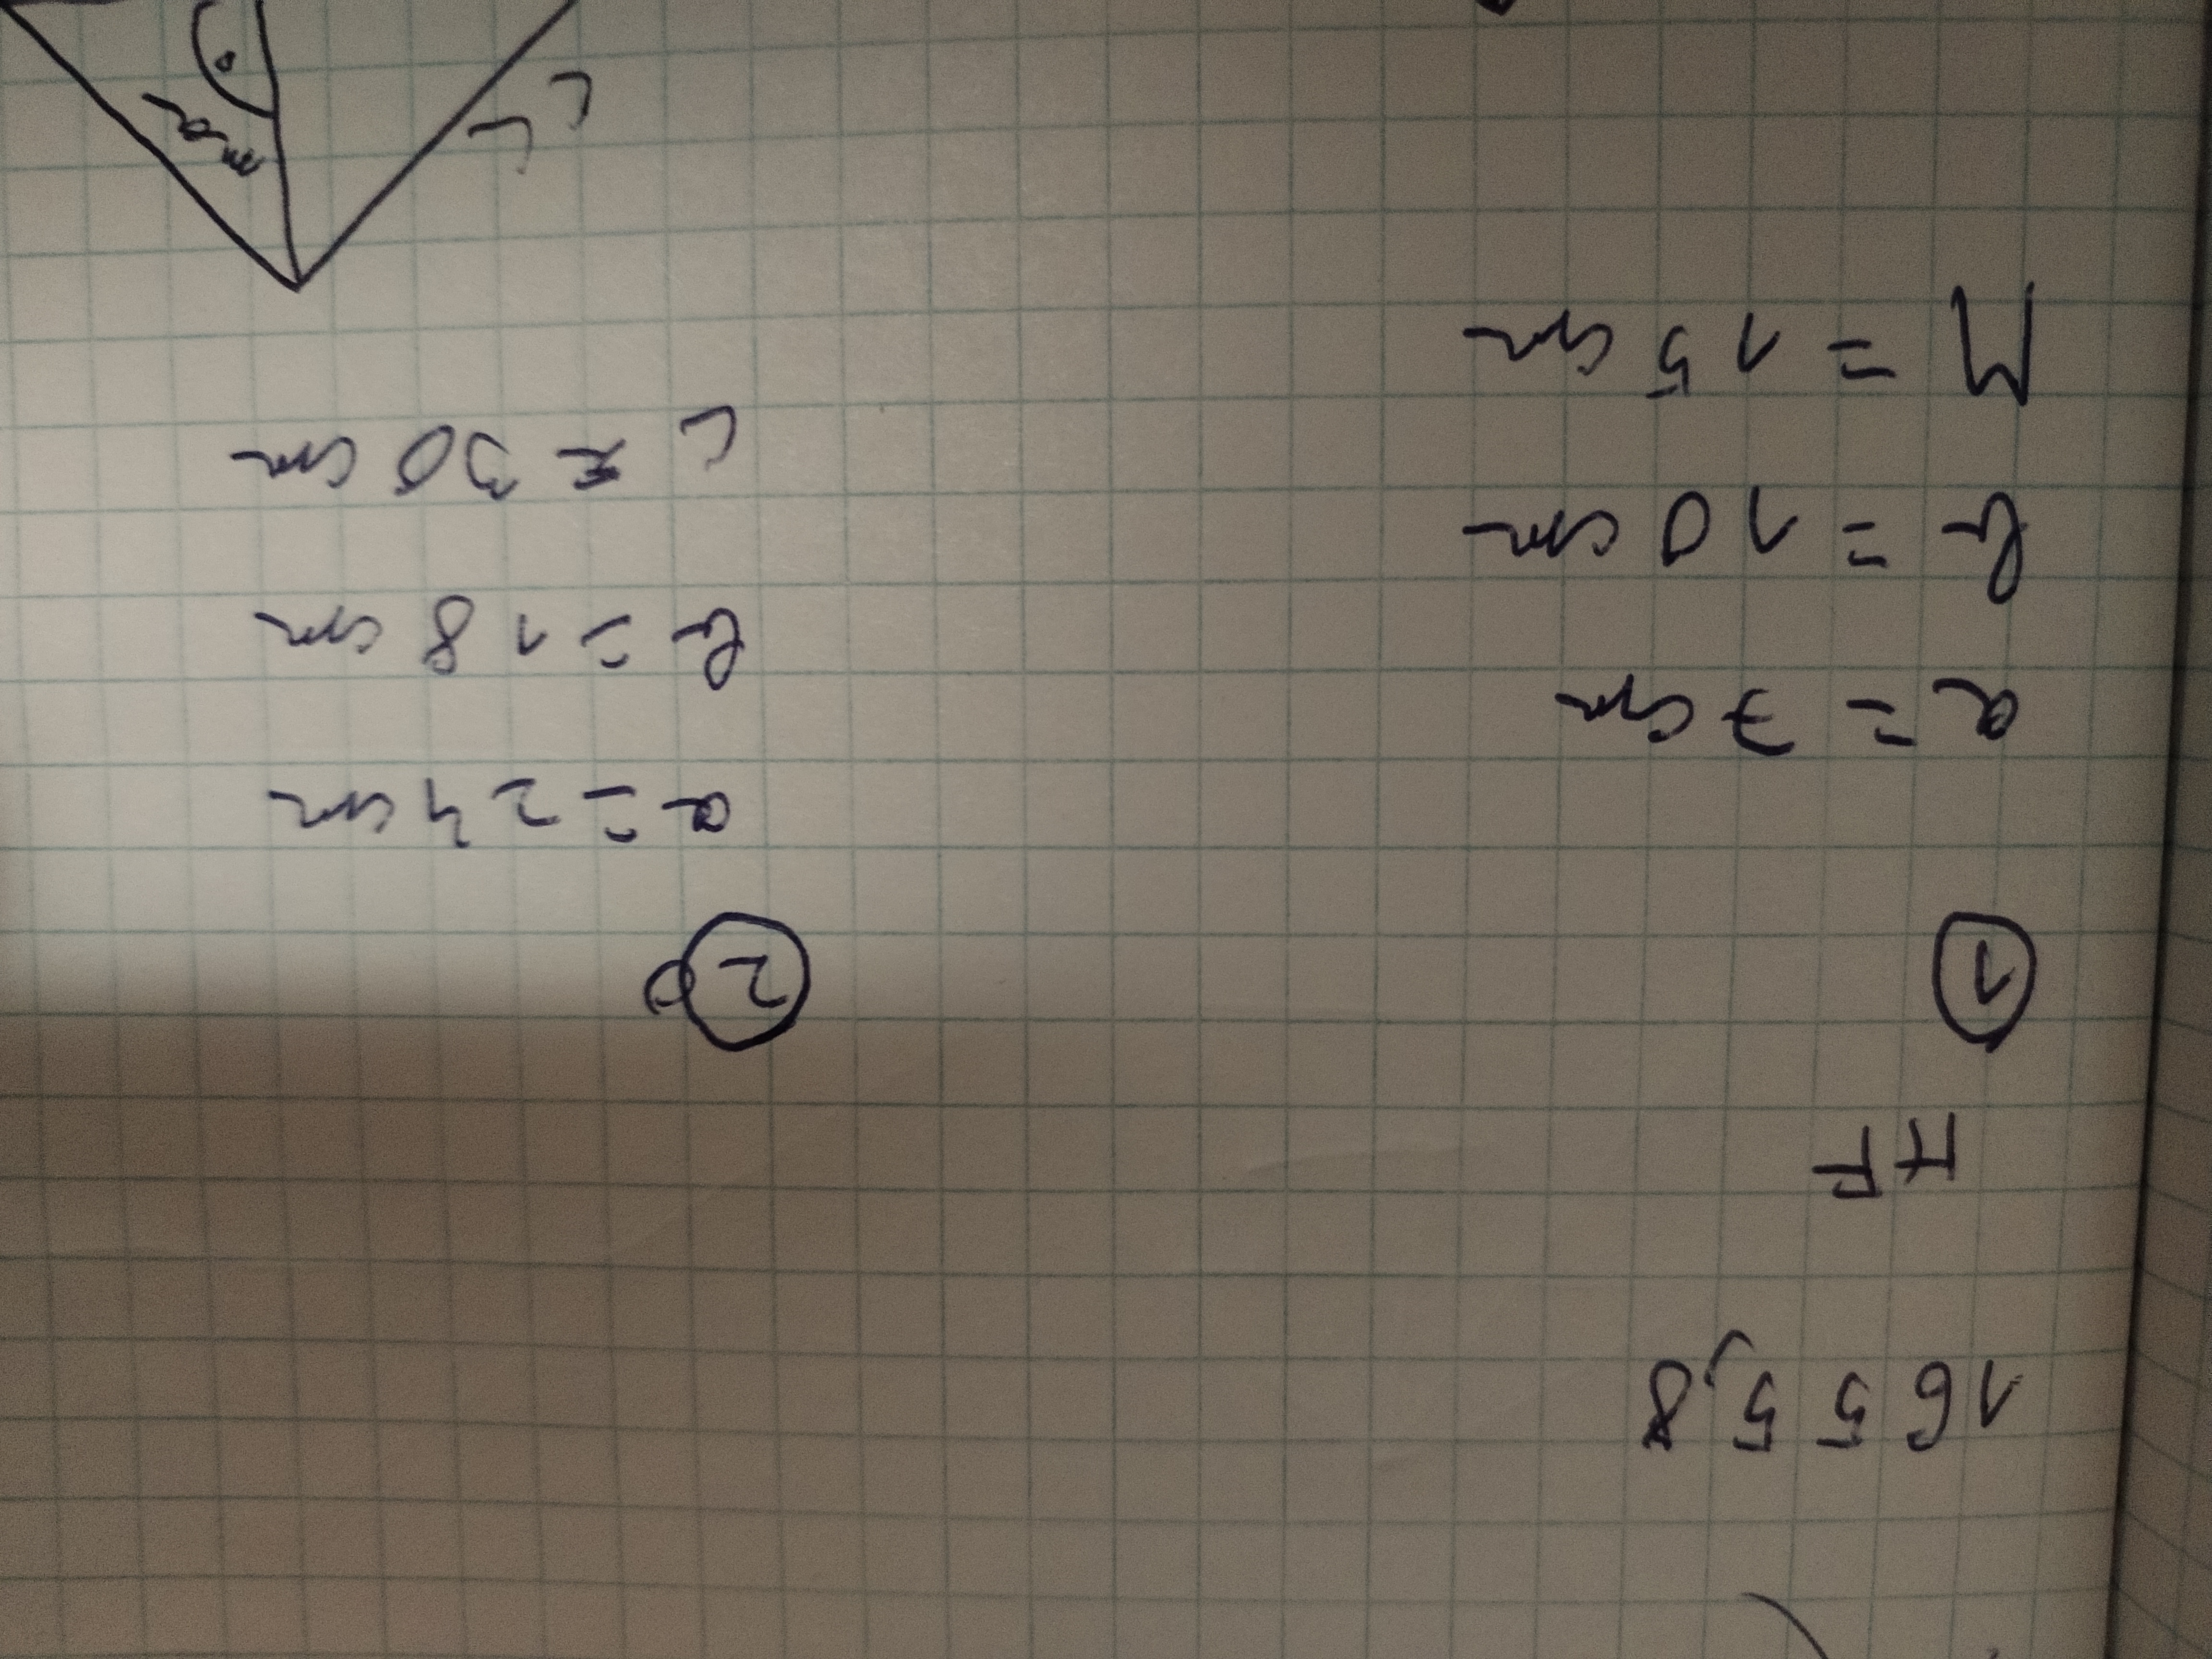 1655,8
HF
①
a = 7 cm
b = 10 cm
M = 15 cm
②
a = 24 cm
b = 18 cm
c = 30 cm
c
ma